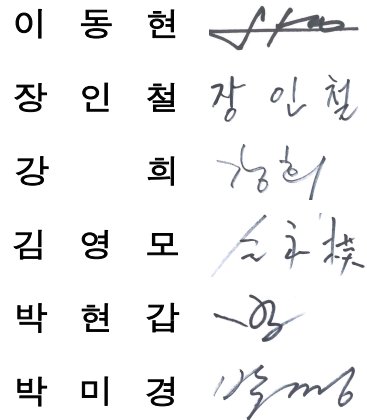 이 동 현
장 인 철 장 인 철
강 희 강희
김 영 모
박 현 갑
박 미 경